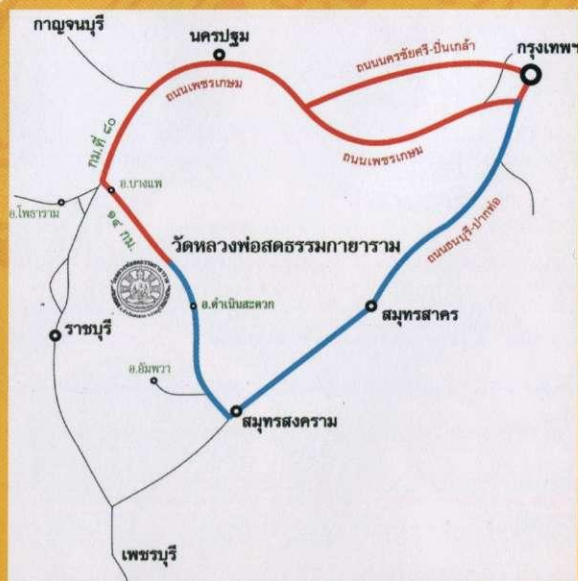 กาญจนบุรี
นครปฐม
ถนนนครชัยศรี-ปิ่นเกล้า
กรุงเทพฯ
ถนนเพชรเกษม
ถนนเพชรเกษม
กม.ที่ ๘๐
อ.บางแพ
อ.โพธาราม
๑๔ กม.
วัดหลวงพ่อสดธรรมกายาราม
ถนนธนบุรี-ปากท่อ
อ.ดำเนินสะดวก
สมุทรสาคร
ราชบุรี
อ.อัมพวา
สมุทรสงคราม
เพชรบุรี